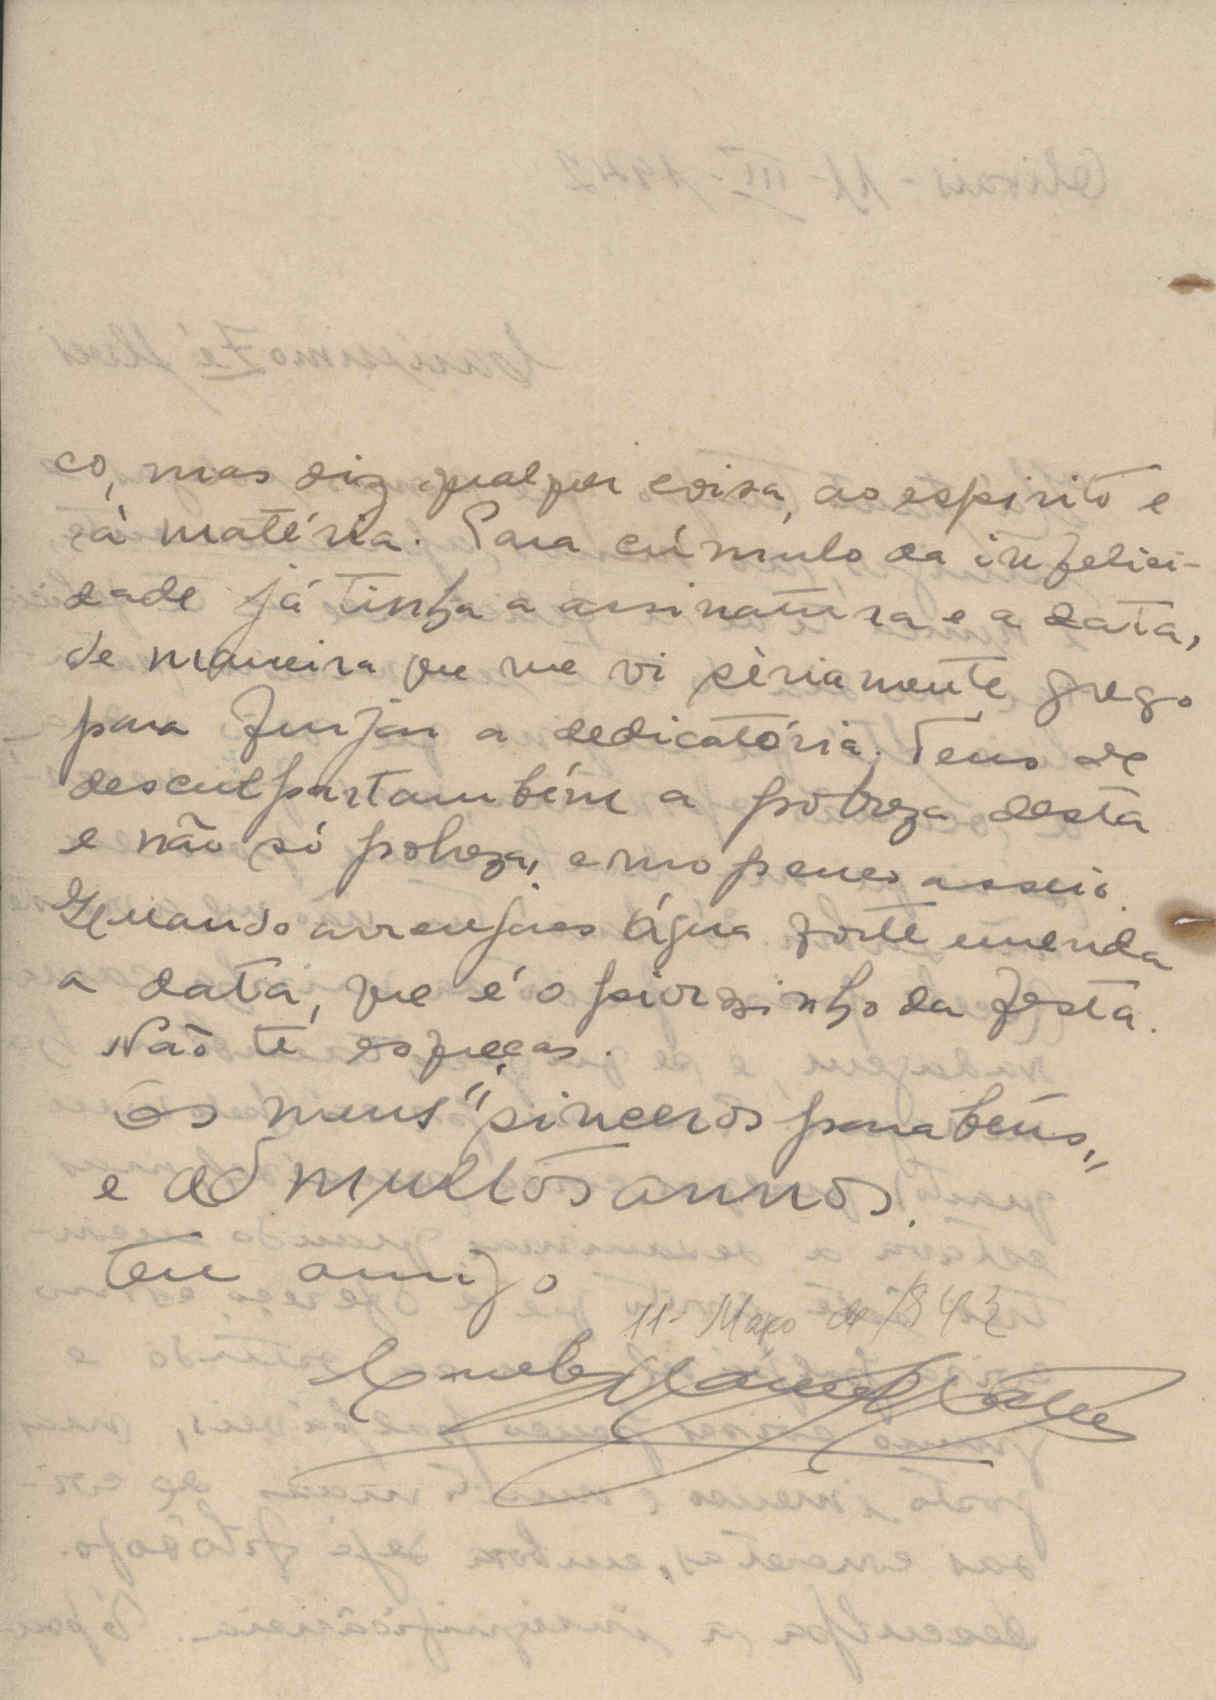 co, mas diz qualquer coisa, ao espirito e
à matéria. Para cúmulo da infelici-
dade já tinha a assinatura e a data,
de maneira que me vi sèriamente grego
para forjar a dedicatória. Tens de
desculpar também a pobreza desta
e não só pobreza, como pouco asseio.
Quando arranjares água forte emenda
a data, que é o piorzinho da festa.
Não te esqueças.
Os meus "sinceros parabéns"
e ad multos annos.
Teu amigo
11 Março de 1842